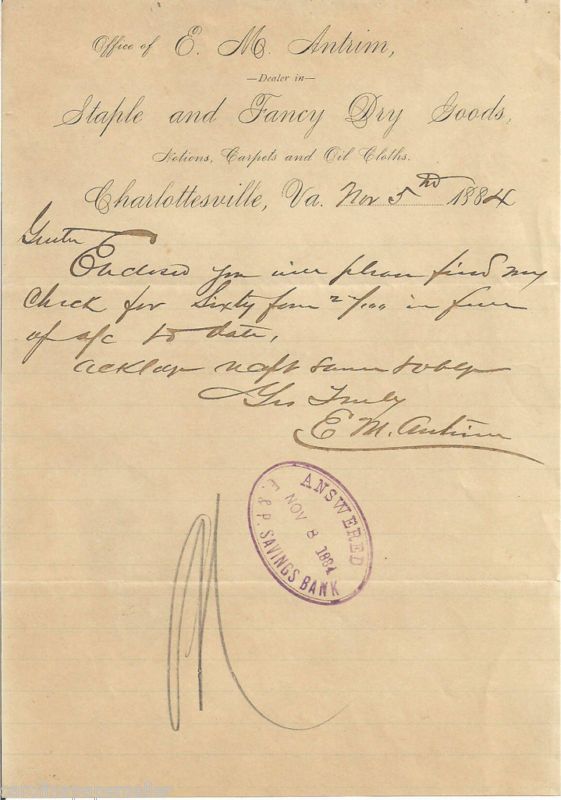 Office of E. M. Antrim,
—Dealer in—
Staple and Fancy Dry Goods,
Notions, Carpets and Oil Cloths.
Charlottesville, Va. Nov 5th 1884
Gents
Enclosed you will please find my
check for Sixty four 2/100 in full
of a/c to date,
ackldge recpt same & oblige
Yrs Truly
E M. Antrim
ANSWERED
NOV 8 1884
F. & P. SAVINGS BANK